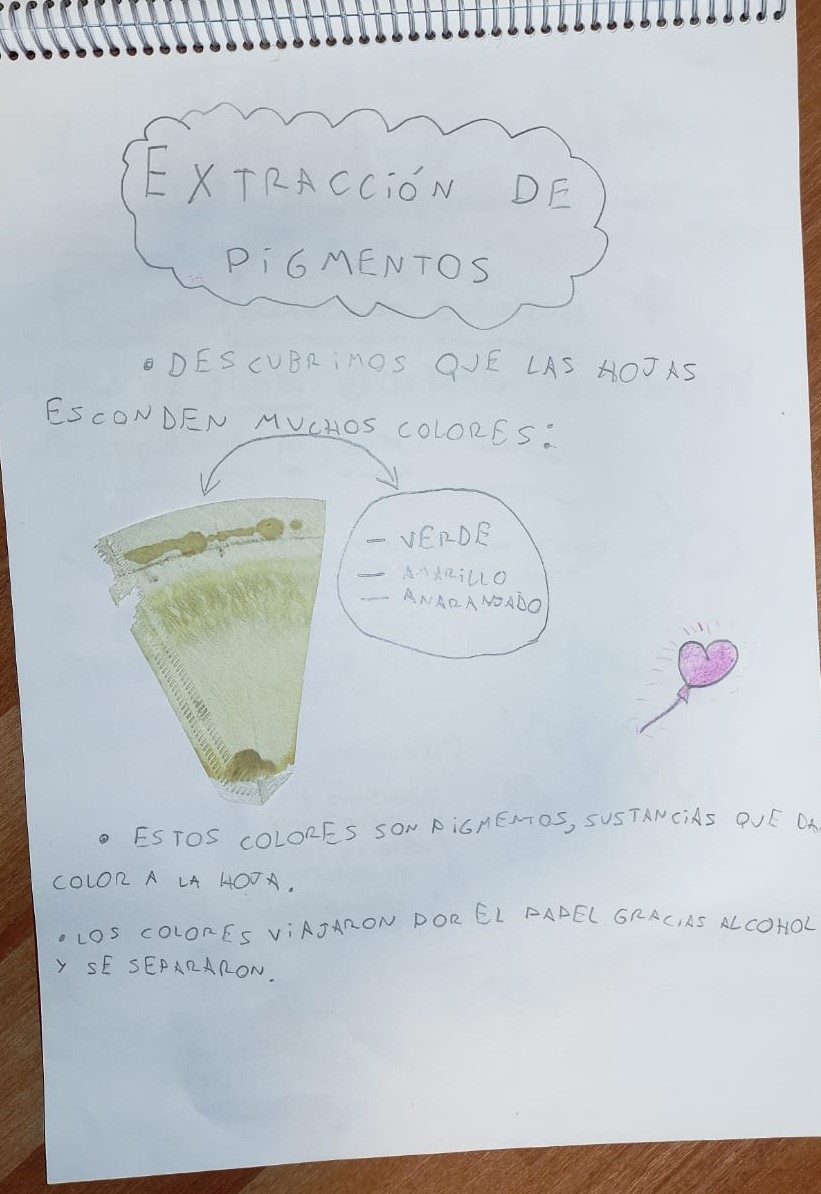 EXTRACCIÓN DE
PIGMENTOS
• DESCUBRIMOS QUE LAS HOJAS
ESCONDEN MUCHOS COLORES:
— VERDE
— AMARILLO
— ANARANJADO
• ESTOS COLORES SON PIGMENTOS, SUSTANCIAS QUE DA
COLOR A LA HOJA.
• LOS COLORES VIAJARON POR EL PAPEL GRACIAS ALCOHOL
Y SE SEPARARON.